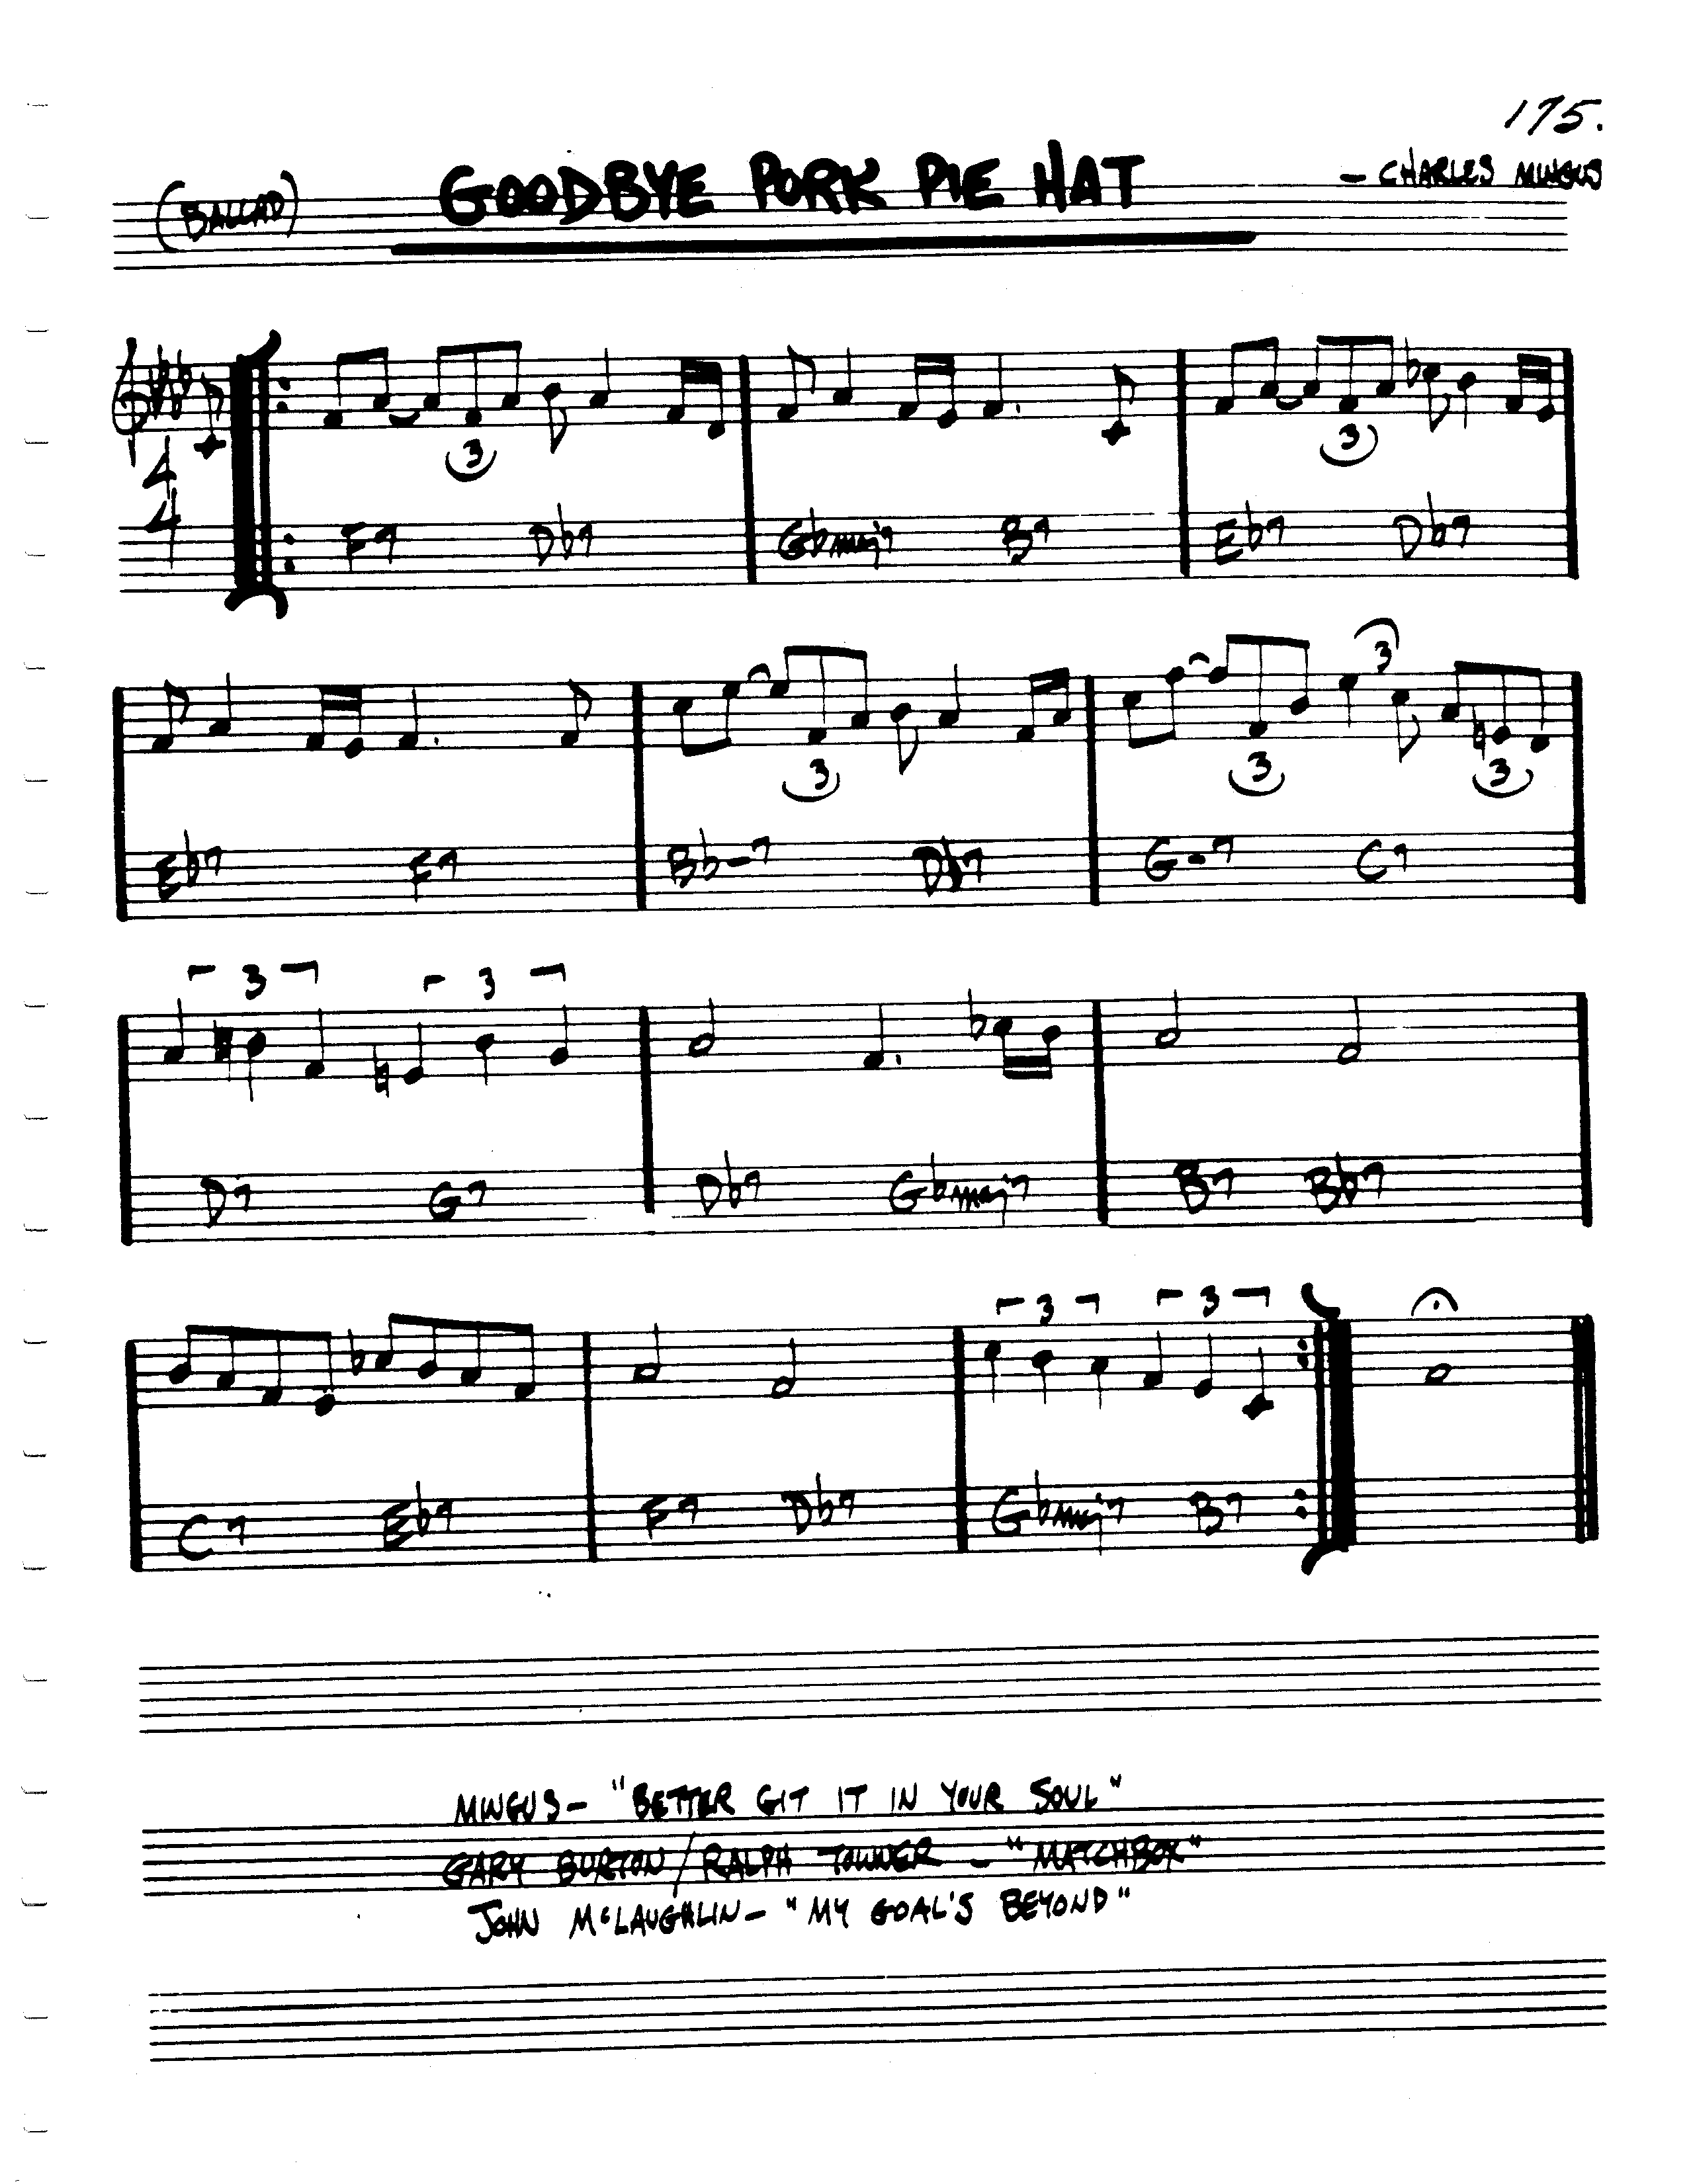 175.
(BALLAD) GOODBYE PORK PIE HAT – CHARLES MINGUS
3 3
4
4 F7 Db7 Gbmaj7 B7 Eb7 Db7
3
3 3 3
Eb7 F7 Bb-7 Db7 G-7 C7
3 3
D7 G7 Db7 Gbmaj7 B7 Bb7
3 3
C7 Eb7 F7 Db7 Gbmaj7 B7
MINGUS – "BETTER GIT IT IN YOUR SOUL"
GARY BURTON/RALPH TOWNER – "MATCHBOX"
JOHN McLAUGHLIN – "MY GOAL'S BEYOND"